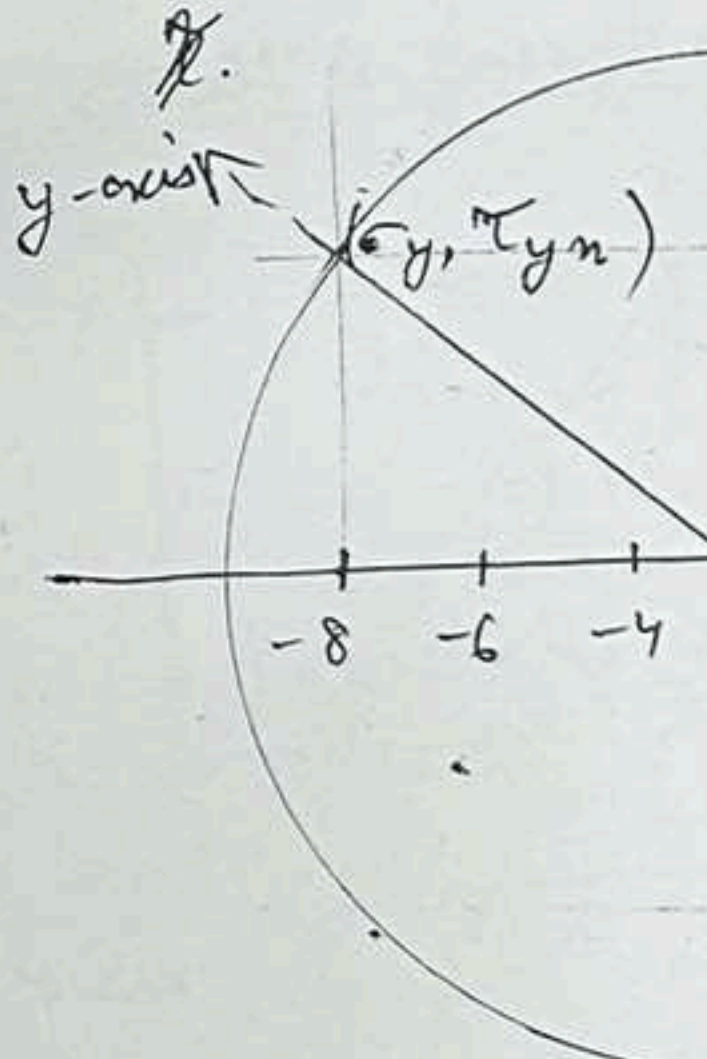 y-axis
(σy, τyx)
-8 -6 -4